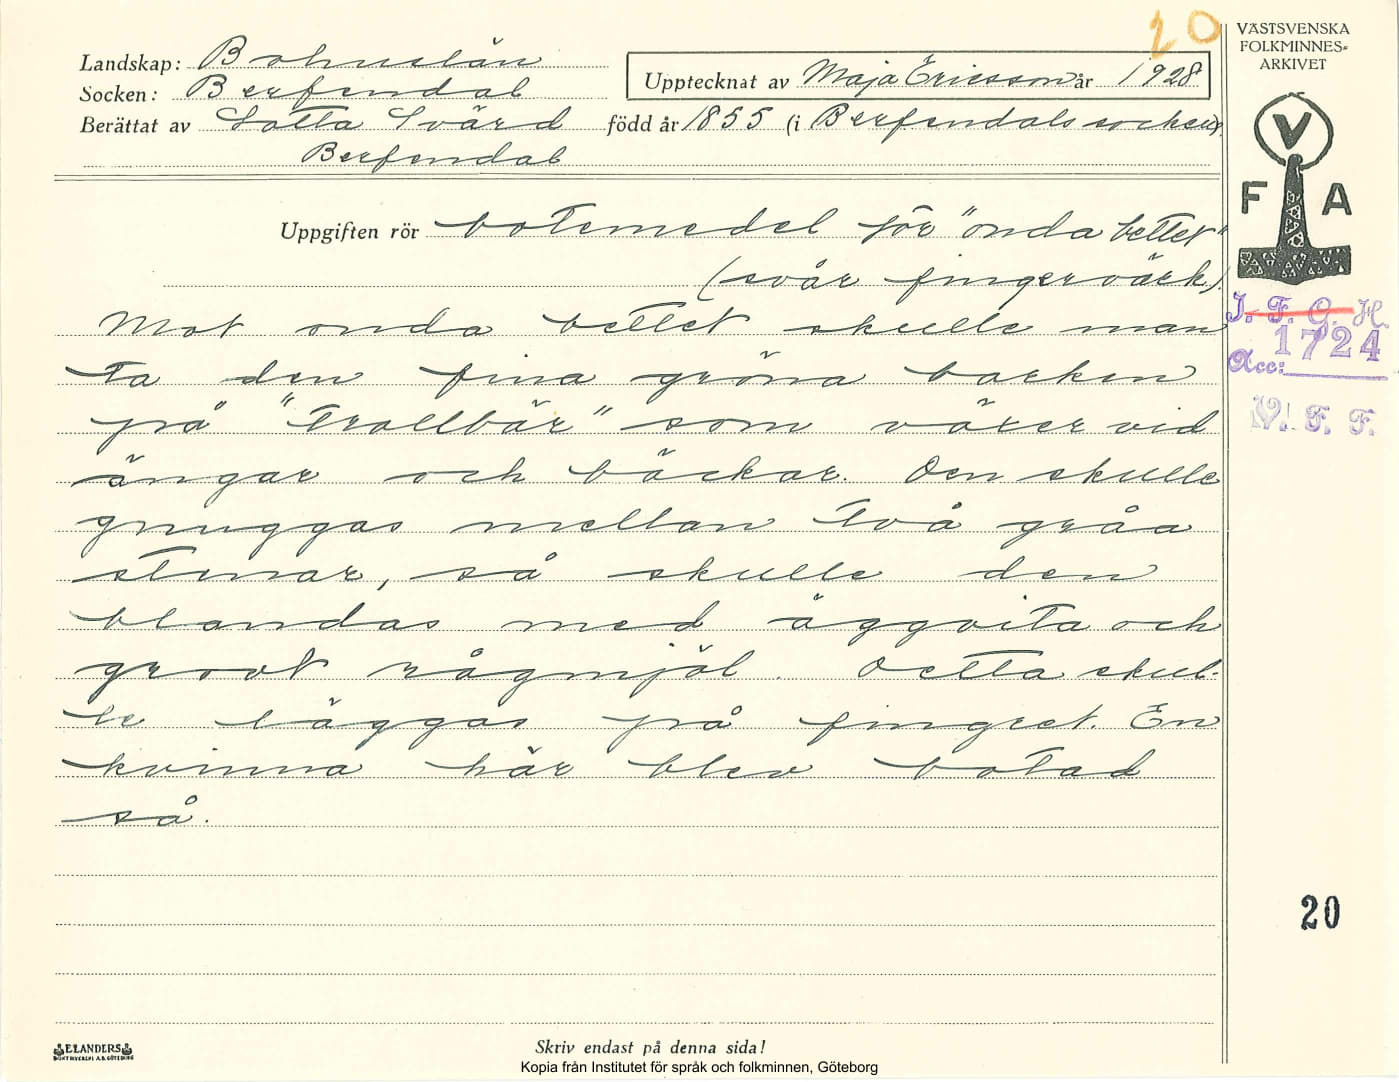 20
VÄSTSVENSKA
FOLKMINNES-
ARKIVET
Landskap: Bohuslän
Upptecknat av Maja Ericsson år 1928
Socken: Berfendal
Berättat av Lotta Svärd född år 1855 (i Berfendals socken).
Berfendal
V
F A
Uppgiften rör botemedel för "onda bettet"
(svår fingervärk).
I. F. G. H.
Acc: 1724
V. F. F.
Mot onda bettet skulle man
ta den fina gröna barken
på "Trollbär" som växer vid
ängar och bäckar. Den skulle
gnuggas mellan två gråa
stenar, så skulle den
blandas med äggvita och
grovt rågmjöl. Detta skul-
le läggas på fingret. En
kvinna här blev botad
så.
20
ELANDERS
BOKTRYCKERI A.B. GÖTEBORG
Skriv endast på denna sida!
Kopia från Institutet för språk och folkminnen, Göteborg